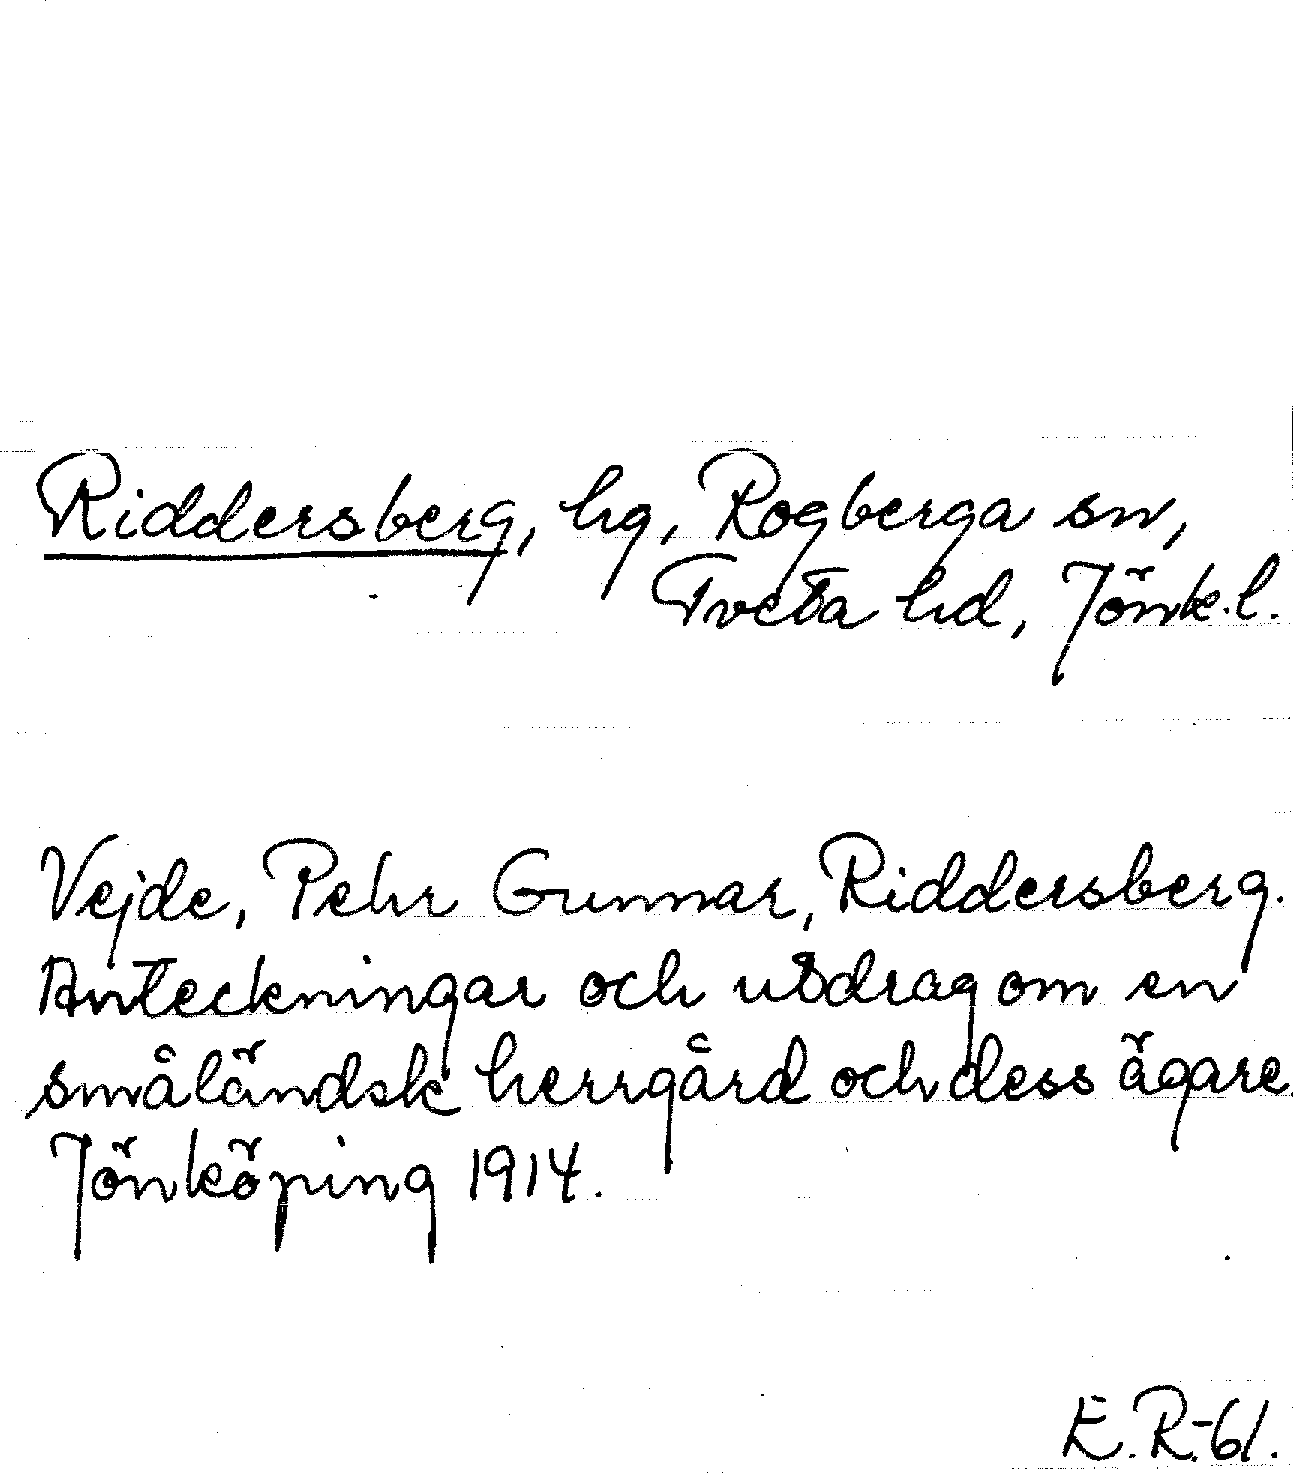 Riddersberg, hg, Rogberga sn,
Tveta hd, Jönk.l.
Vejde, Pehr Gunnar, Riddersberg.
Anteckningar och utdrag om en
småländsk herrgård och dess ägare.
Jönköping 1914.
E.R.-61.